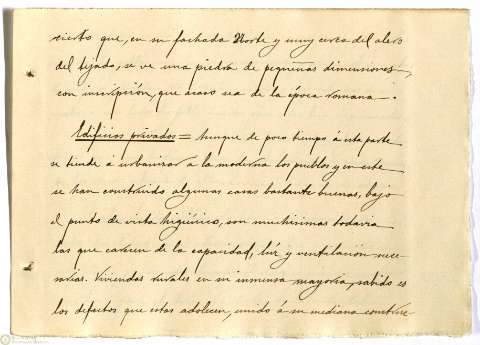 cierto que, en su fachada Norte y muy cerca del alero
del tejado, se ve una piedra de pequeñas dimensiones,
con inscripción, que acaso sea de la época romana.
Edificios privados = Aunque de poco tiempo á esta parte
se tiende á urbanizar a la moderna los pueblos y en este
se han construido algunas casas bastante buenas, bajo
el punto de vista higiénico, son muchísimas todavia
las que carecen de la capacidad, luz y ventilación nece-
sarias. Viviendas rurales en su inmensa mayoria, sabido es
los defectos que estas adolecen, unido á su mediana construc-